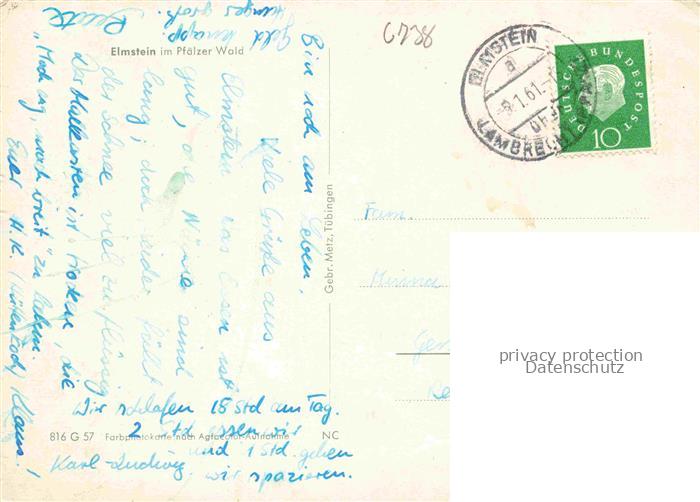 Elmstein im Pfälzer Wald
Bin noch am Leben,
Viele Grüße aus
Elmstein das Essen ist
gut, die Würste sind
lang, doch leider fällt
der Schnee viel zu flüssig
Der Malkasten ist trocken, die
Geld knapp.
Hunger groß.
Wir schlafen 18 Std am Tag.
2 Std essen wir
und 1 Std. gehen
wir spazieren.
Karl-Ludwig
Euer H.K.
Klaus!
816 G 57 Farbphotokarte nach Agfacolor-Aufnahme NC
Gebr. Metz, Tübingen
6738
ELMSTEIN
a
-9.1.61.-
LAMBRECHT (PFALZ)
DEUTSCHE BUNDESPOST
10
Fam.
privacy protection
Datenschutz